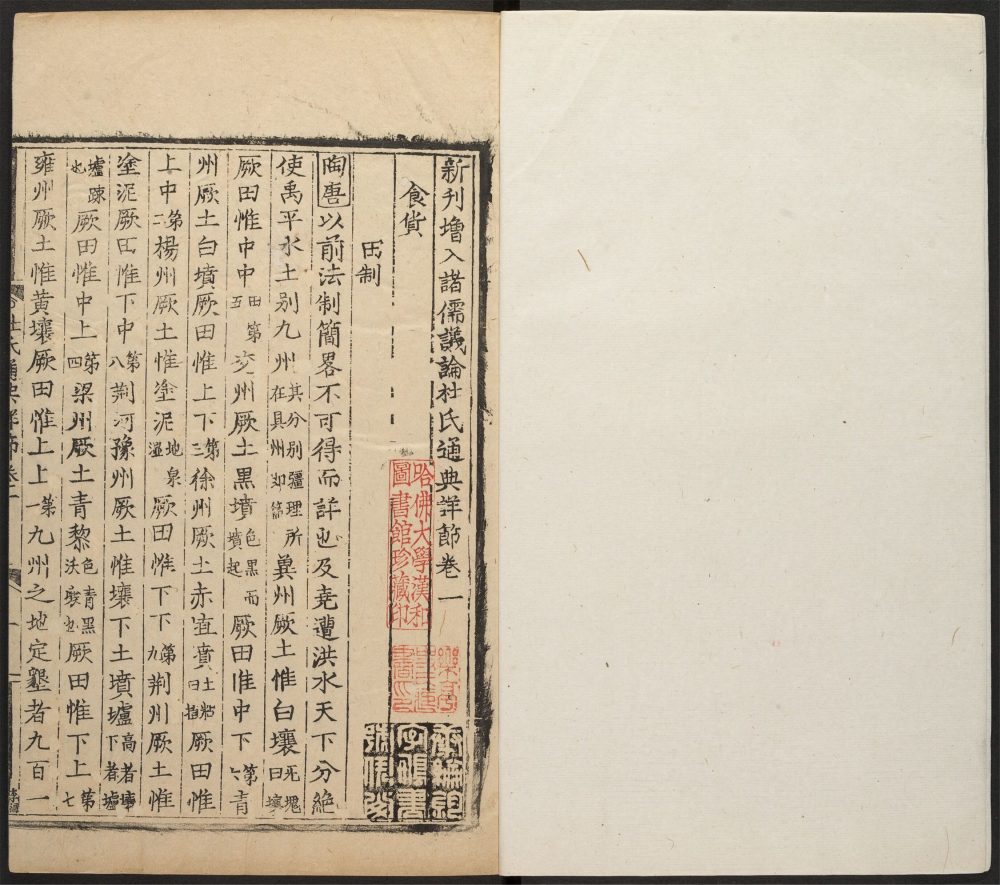 新刊增入諸儒議論杜氏通典詳節卷一
食貨
田制
陶唐以前法制簡畧不可得而詳也及堯遭洪水天下分絶
使禹平水土别九州其分别疆理所在具州郡篇兾州厥土惟白壤无塊曰壤
厥田惟中中田第五兖州厥土黑墳色黑而墳起厥田惟中下第六青
州厥土白墳厥田惟上下第三徐州厥土赤埴墳土黏曰埴厥田惟
上中第二楊州厥土惟塗泥地泉濕厥田惟下下第九荆州厥土惟
塗泥厥田惟下中第八荆河豫州厥土惟壤下土墳壚高者壤下者壚
壚疎也厥田惟中上第四梁州厥土青黎色青黑沃壤也厥田惟下上第七
雍州厥土惟黄壤厥田惟上上第一九州之地定墾者九百一
杜氏通典詳節卷一
哈佛大學漢和圖書館珍藏印